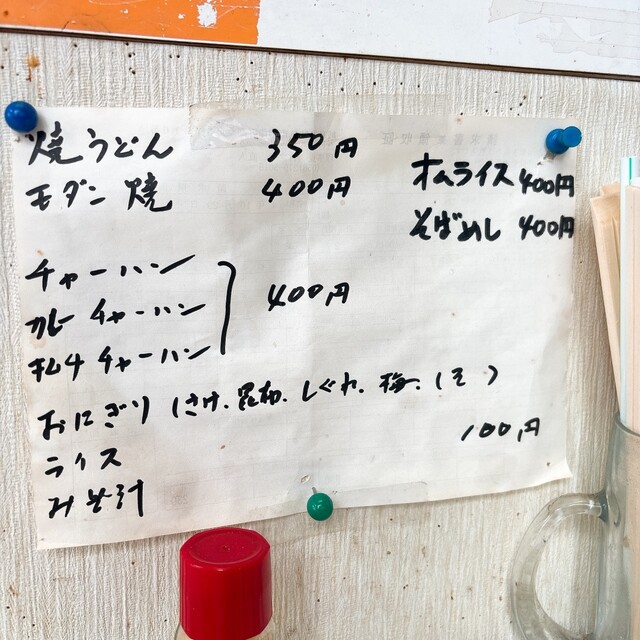 焼うどん 350円
モダン焼 400円
オムライス 400円
そばめし 400円
チャーハン
カレーチャーハン 400円
キムチチャーハン
おにぎり (さけ、昆布、しぐれ、梅、しそ)
100円
ライス
みそ汁